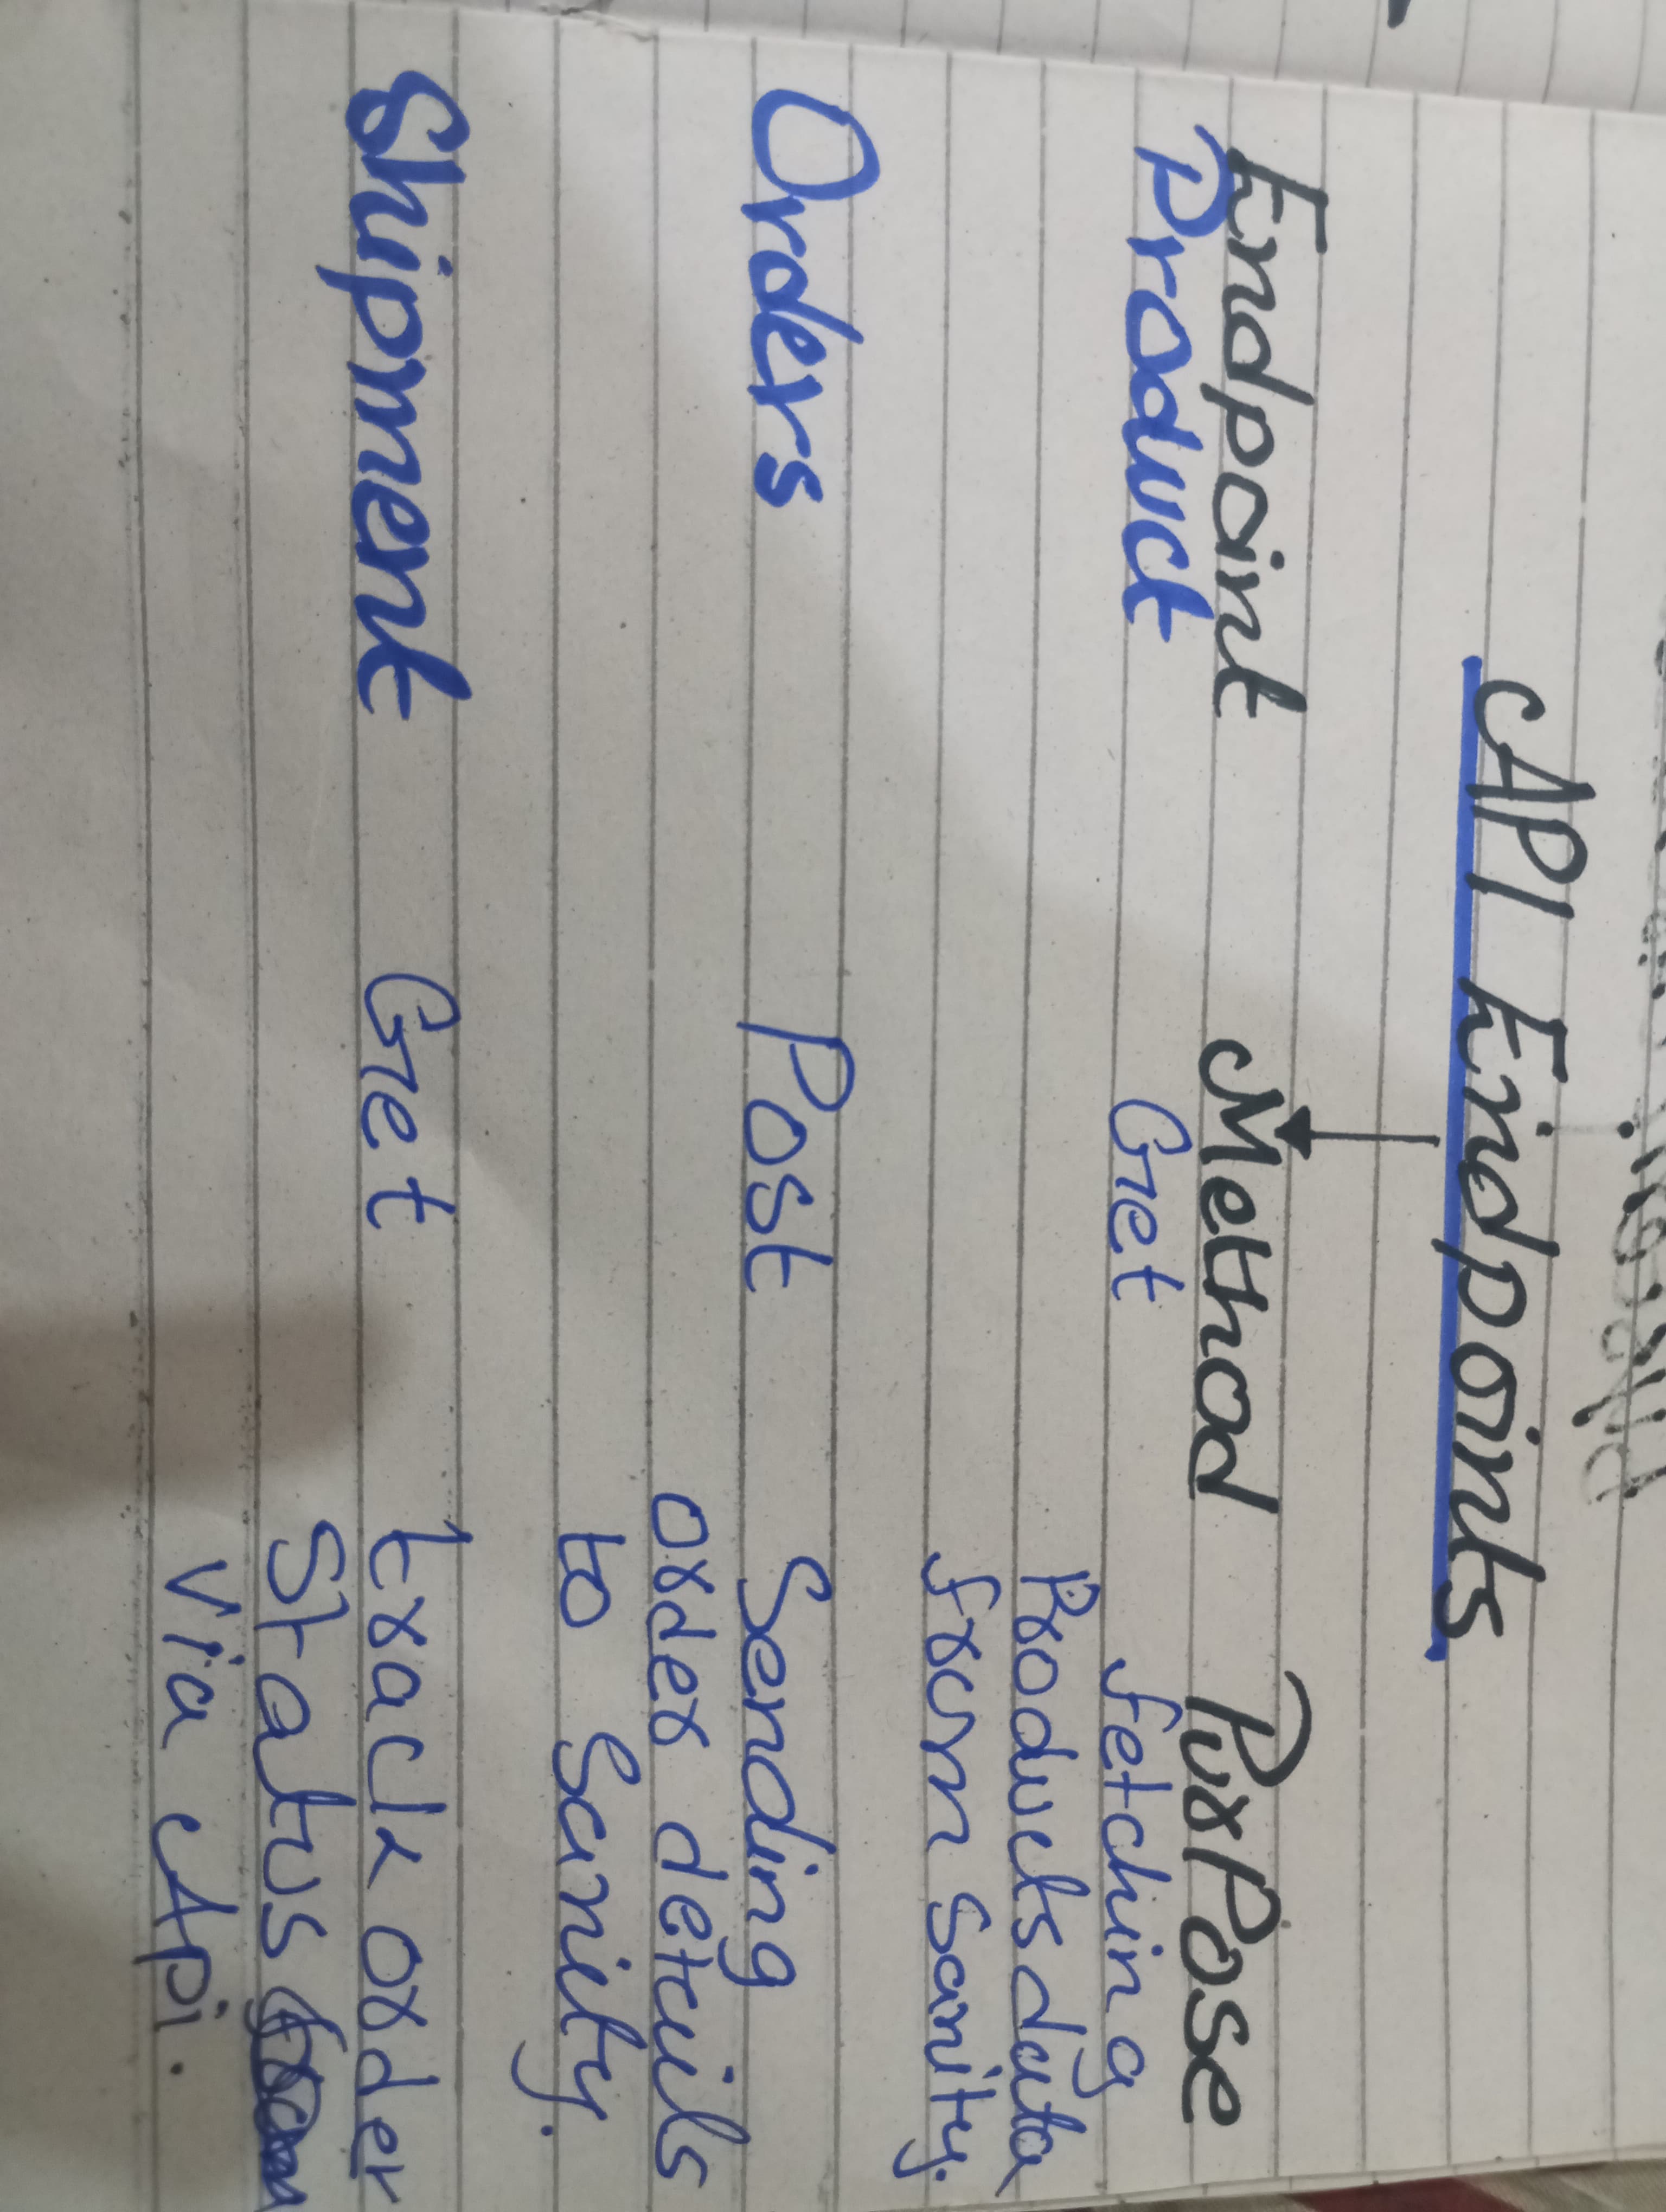 API Endpoints
Endpoint Method PurPose
Product Get fetching
Products data
from Sanity.
Orders Post Sending
order details
to Sanity.
Shipment Get track order
Status
via Api.